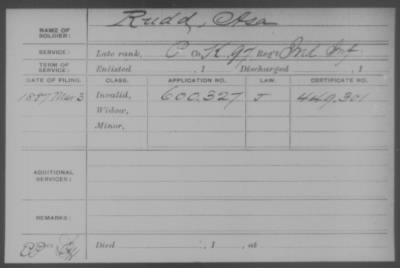 NAME OF SOLDIER: Rudd, Asa
SERVICE: Late rank, P Co. K, 97 Reg't Ind Inf
TERM OF SERVICE: Enlisted , 1 Discharged , 1
DATE OF FILING. CLASS. APPLICATION NO. LAW. CERTIFICATE NO.
1887 Mar 3 Invalid, 600.327 J 449.301
Widow,
Minor,
ADDITIONAL SERVICES:
REMARKS:
Died , 1 , at